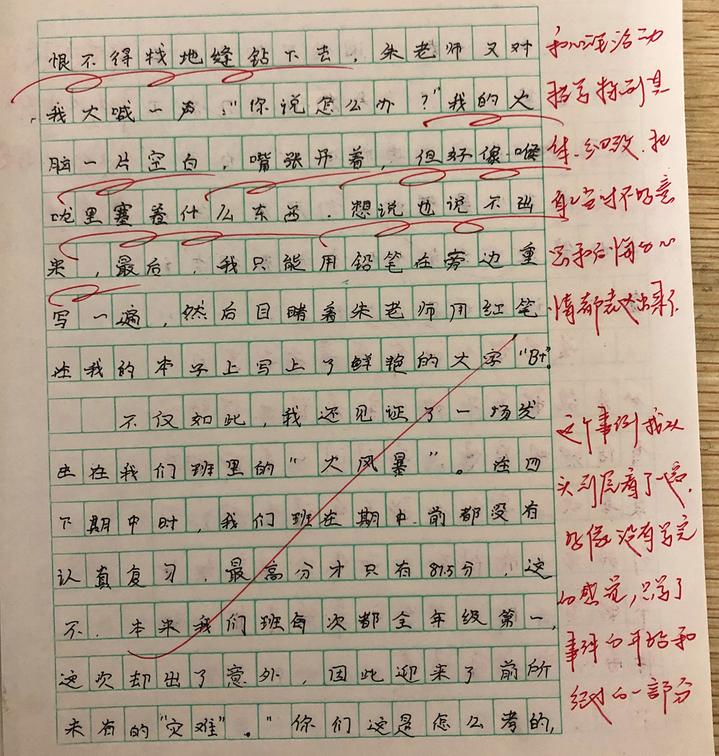 恨不得找地缝钻下去，朱老师又对
我大喊一声："你说怎么办？"我的大
脑一片空白，嘴张开着，但好像喉
咙里塞着什么东西，想说也说不出
来，最后，我只能用铅笔在旁边重
写一遍，然后目睹着朱老师用红笔
在我的本子上写上了鲜艳的大字"B+"。
不仅如此，我还见证了一场发
生在我们班里的"大风暴"。在四
下期中时，我们班在期中前都没有
认真复习，最高分才只有87.5分，这
不，本来我们班每次都全年级第一，
这次却出了意外，因此迎来了前所
未有的"灾难"。"你们这是怎么考的，
和心理活动
描写刻具
体、细致，把
自己当时不好意
思和后悔的心
情都表达出来了
这个事例我从
头到尾看了一遍，
好像没有写完
的感觉，只写了
事件的开始和
经过的一部分